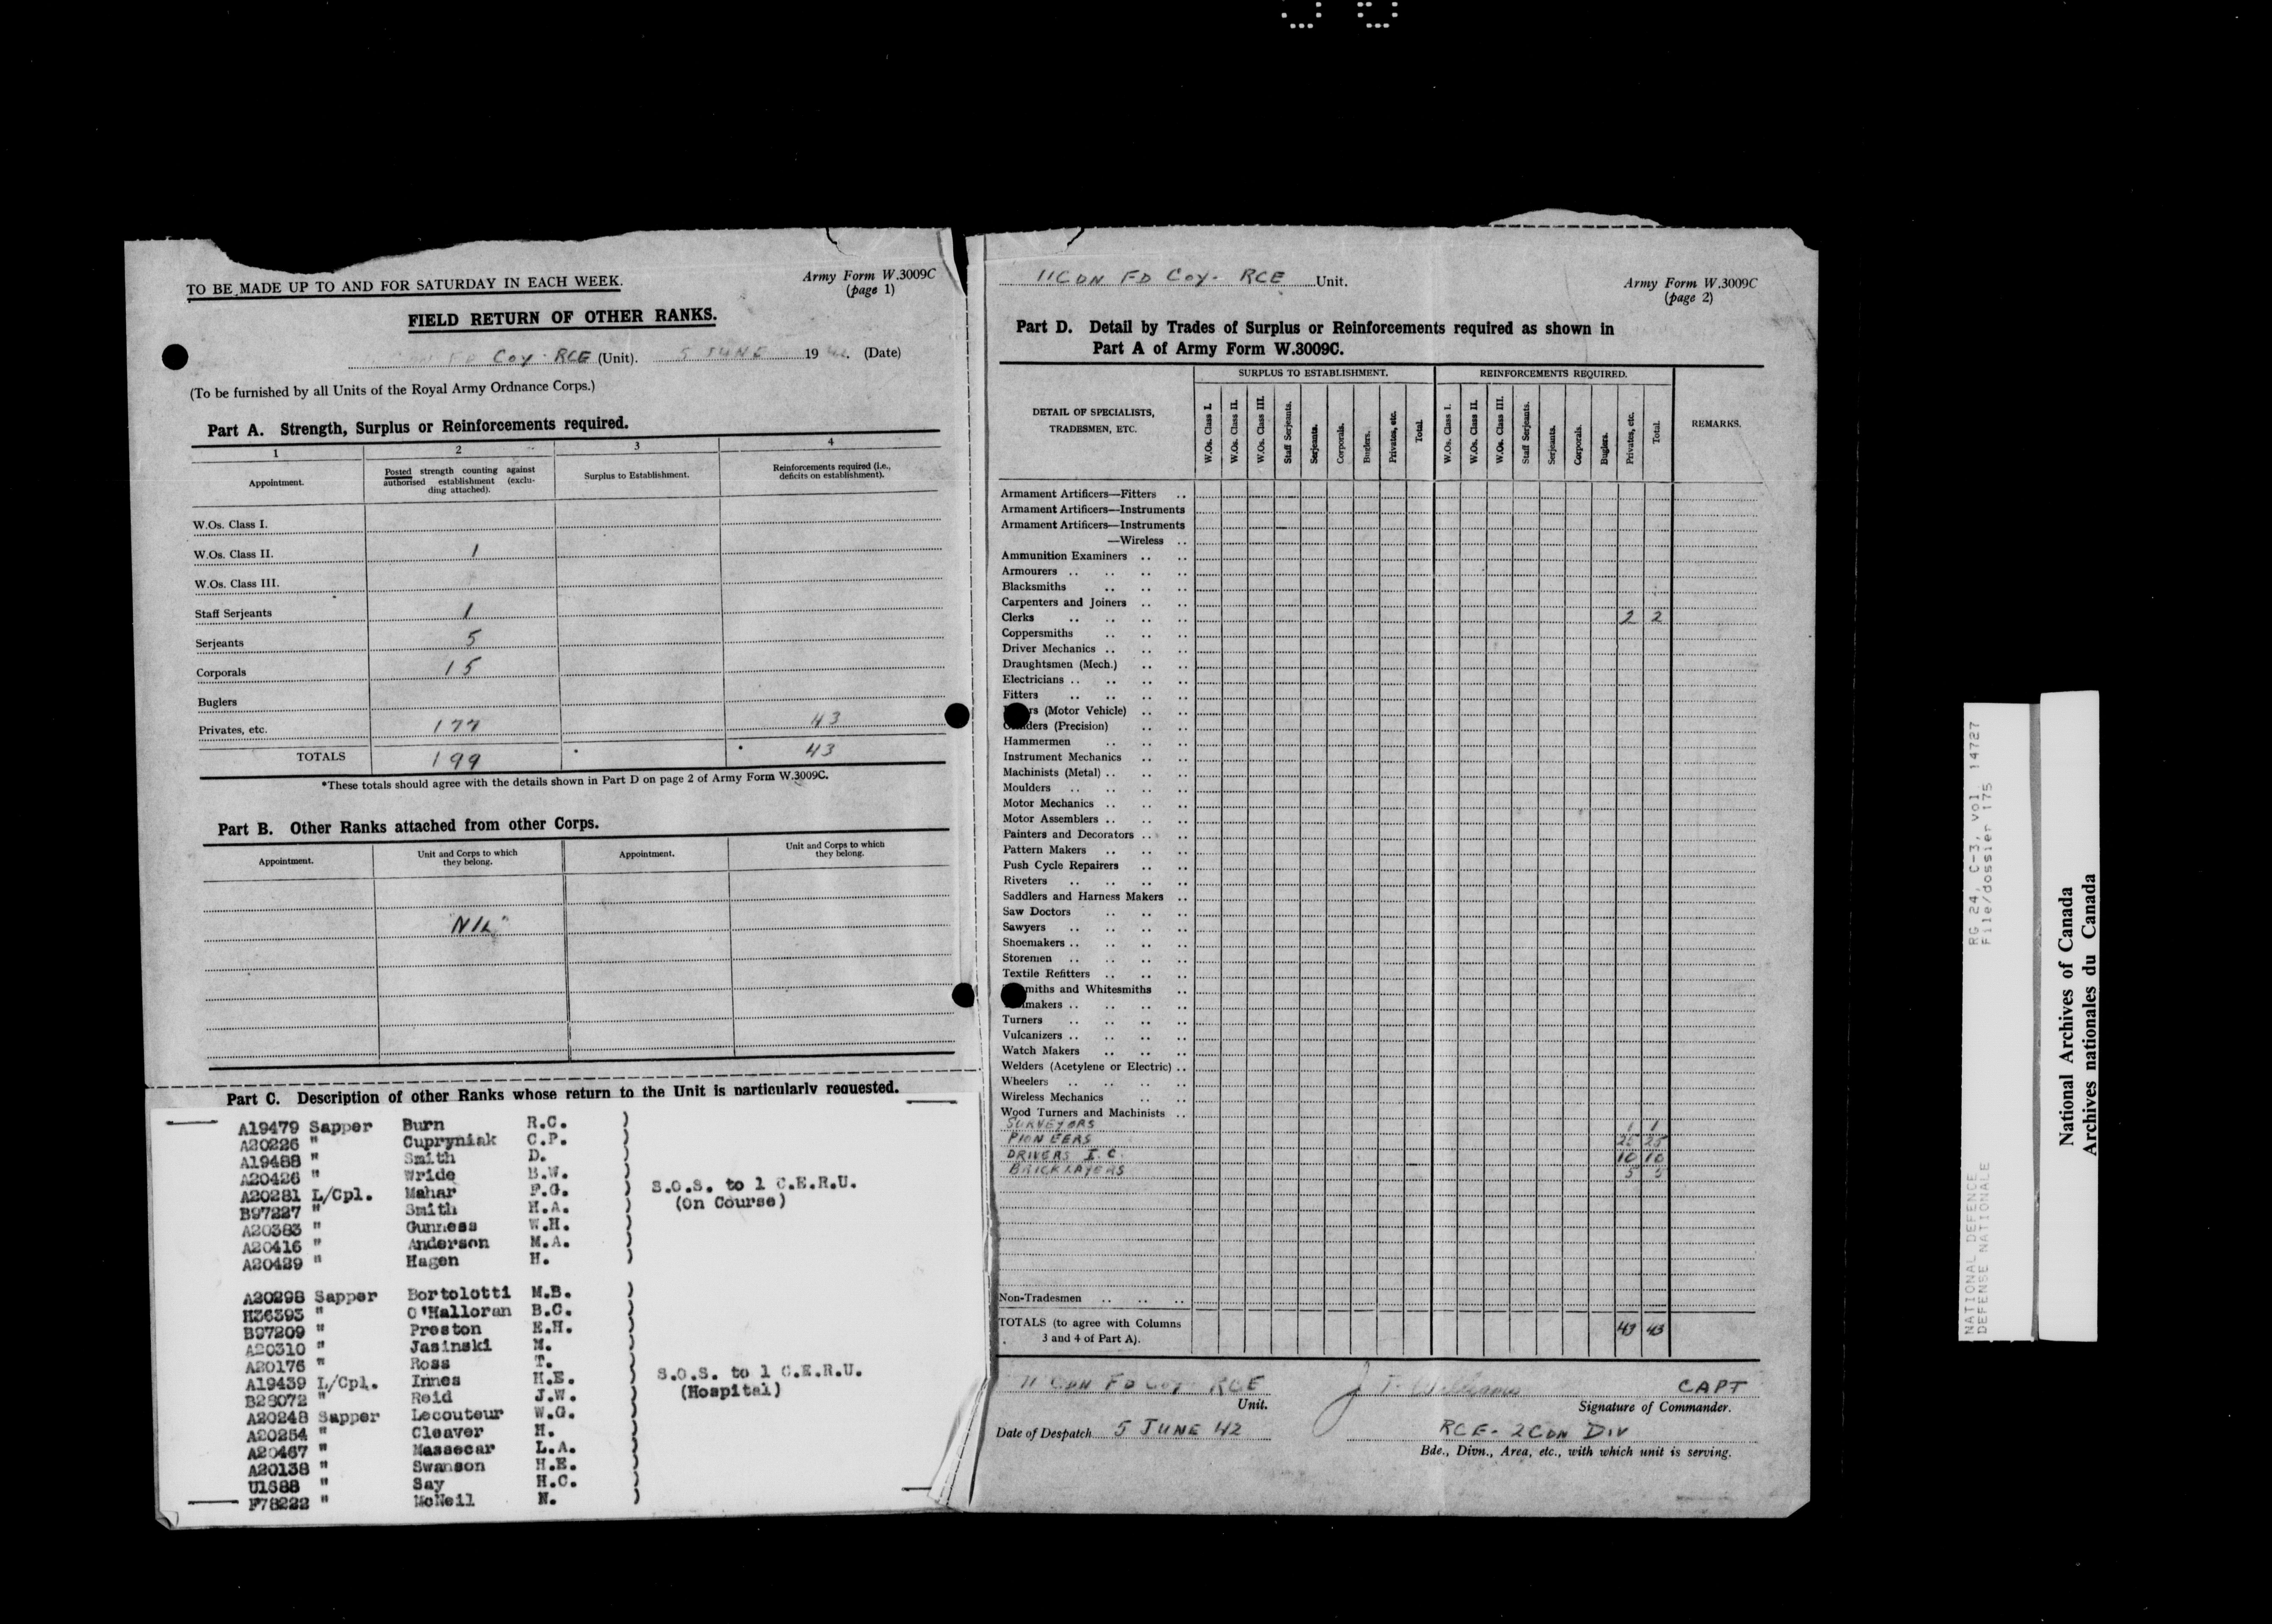 TO BE MADE UP TO AND FOR SATURDAY IN EACH WEEK.
Army Form W.3009C
(page 1)
FIELD RETURN OF OTHER RANKS.
Coy. RCE (Unit). 5 JUNE 19 42. (Date)
(To be furnished by all Units of the Royal Army Ordnance Corps.)
Part A. Strength, Surplus or Reinforcements required.
1 2 3 4
Appointment. Posted strength counting against authorised establishment (excluding attached). Surplus to Establishment. Reinforcements required (i.e., deficits on establishment).
W.Os. Class I.
W.Os. Class II. 1
W.Os. Class III.
Staff Serjeants 1
Serjeants 5
Corporals 15
Buglers
Privates, etc. 177 43
TOTALS 199 * * 43
*These totals should agree with the details shown in Part D on page 2 of Army Form W.3009C.
Part B. Other Ranks attached from other Corps.
Appointment. Unit and Corps to which they belong. Appointment. Unit and Corps to which they belong.
"NIL"
Part C. Description of other Ranks whose return to the Unit is particularly requested.
A19479 Sapper Burn R.C. )
A20226 " Cupryniak C.P. )
A19488 " Smith D. )
A20426 " Wride B.W. )
A20281 L/Cpl. Mahar F.G. ) S.O.S. to 1 C.E.R.U.
B97227 " Smith H.A. ) (On Course)
A20383 " Gunness W.H. )
A20416 " Anderson M.A. )
A20429 " Hagen H. )
A20298 Sapper Bortolotti M.B. )
H36393 " O'Halloran B.C. )
B97209 " Preston E.H. )
A20310 " Jasinski M. )
A20176 " Ross T. )
A19439 L/Cpl. Innes H.E. ) S.O.S. to 1 C.E.R.U.
B25072 " Reid J.W. ) (Hospital)
A20248 Sapper Lecouteur W.G. )
A20254 " Cleaver H. )
A20467 " Massecar L.A. )
A20138 " Swanson H.E. )
U1688 " Say H.C. )
F78222 " McNeil N. )
11 CDN FD COY. RCE Unit.
Army Form W.3009C
(page 2)
Part D. Detail by Trades of Surplus or Reinforcements required as shown in
Part A of Army Form W.3009C.
DETAIL OF SPECIALISTS, TRADESMEN, ETC. SURPLUS TO ESTABLISHMENT. REINFORCEMENTS REQUIRED. REMARKS.
W.Os. Class I. W.Os. Class II. W.Os. Class III. Staff Serjeants. Serjeants. Corporals. Buglers. Privates, etc. Total. W.Os. Class I. W.Os. Class II. W.Os. Class III. Staff Serjeants. Serjeants. Corporals. Buglers. Privates, etc. Total.
Armament Artificers—Fitters ..
Armament Artificers—Instruments
Armament Artificers—Instruments
—Wireless ..
Ammunition Examiners .. ..
Armourers .. .. .. ..
Blacksmiths .. .. ..
Carpenters and Joiners .. ..
Clerks .. .. .. .. 2 2
Coppersmiths .. .. ..
Driver Mechanics .. .. ..
Draughtsmen (Mech.) .. ..
Electricians .. .. .. ..
Fitters .. .. .. ..
rs (Motor Vehicle) .. ..
ders (Precision) .. ..
Hammermen .. .. ..
Instrument Mechanics .. ..
Machinists (Metal) .. .. ..
Moulders .. .. .. ..
Motor Mechanics .. .. ..
Motor Assemblers .. .. ..
Painters and Decorators .. ..
Pattern Makers .. .. ..
Push Cycle Repairers .. ..
Riveters .. .. .. ..
Saddlers and Harness Makers ..
Saw Doctors .. ..
Sawyers .. .. .. ..
Shoemakers .. .. .. ..
Storemen .. .. .. ..
Textile Refitters .. .. ..
miths and Whitesmiths ..
makers .. .. .. ..
Turners .. .. .. ..
Vulcanizers .. .. .. ..
Watch Makers .. .. ..
Welders (Acetylene or Electric) ..
Wheelers .. .. .. ..
Wireless Mechanics .. ..
Wood Turners and Machinists ..
SURVEYORS 1 1
PIONEERS 25 25
DRIVERS I.C. 10 10
BRICKLAYERS 5 5
Non-Tradesmen .. .. ..
TOTALS (to agree with Columns 3 and 4 of Part A). 43 43
11 CDN FD COY RCE
Unit.
J. T. Williams CAPT
Signature of Commander.
Date of Despatch 5 JUNE 42
RCE - 2 CDN DIV
Bde., Divn., Area, etc., with which unit is serving.
NATIONAL DEFENCE RG 24, C-3, vol. 14727
DEFENSE NATIONALE File/dossier 175
National Archives of Canada
Archives nationales du Canada